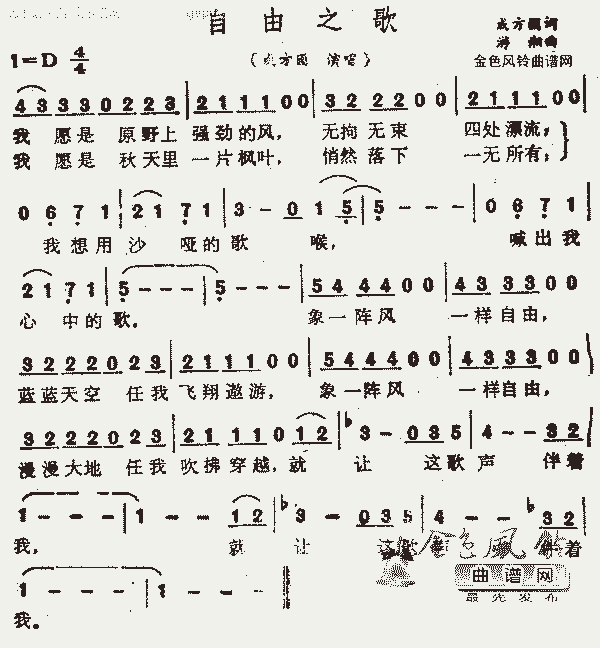 自由之歌
成方圆 词
1=D 4/4
(成方圆 演唱)
金色风铃曲谱网
43 33 02 23 | 21 11 00 | 32 22 00 | 21 11 00
我 愿是 原野上 强劲的风, 无拘无束 四处漂流;
我 愿是 秋天里 一片枫叶, 悄然落下 一无所有;
0 6 7 1 | 21 7 1 | 3 - 0 1 5 | 5 - - - | 0 6 7 1 |
我想用 沙 哑的歌 喉, 喊出我
21 7 1 | 5 - - - | 5 - - - | 54 44 00 | 43 33 00 |
心 中的歌. 象一阵风 一样自由,
32 22 02 23 | 21 11 00 | 54 44 00 | 43 33 00 |
蓝蓝天空 任我飞翔遨游, 象一阵风 一样自由,
32 22 02 23 | 21 11 0 12 | b3 - 03 5 | 4 - - 32 |
漫漫大地 任我吹拂穿越,就 让 这歌声 伴着
1 - - - | 1 - - 12 | b3 - 03 5 | 4 - - b32 |
我, 就 让 这 着
1 - - - | 1 - - - ‖
我。
金色風
曲谱网
最先发布